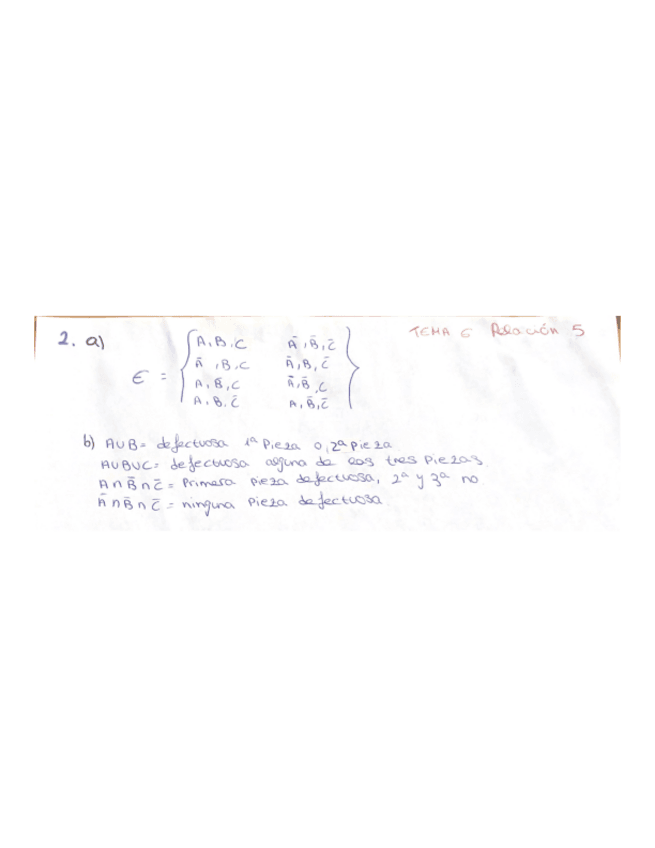 TEMA 6 Relación 5
2. a)
A, B, C    Ā, B̄, C̄
Ā, B, C    Ā, B, C̄
Є =
A, B̄, C    Ā, B̄, C
A, B, C̄    A, B̄, C̄
b) A∪B= defectuosa 1ª Pieza o, 2ª Pieza
A∪B∪C= defectuosa alguna de las tres Piezas
A ∩ B̄ ∩ C̄ = Primera pieza defectuosa, 2ª y 3ª no
Ā ∩ B̄ ∩ C̄ = ninguna Pieza defectuosa